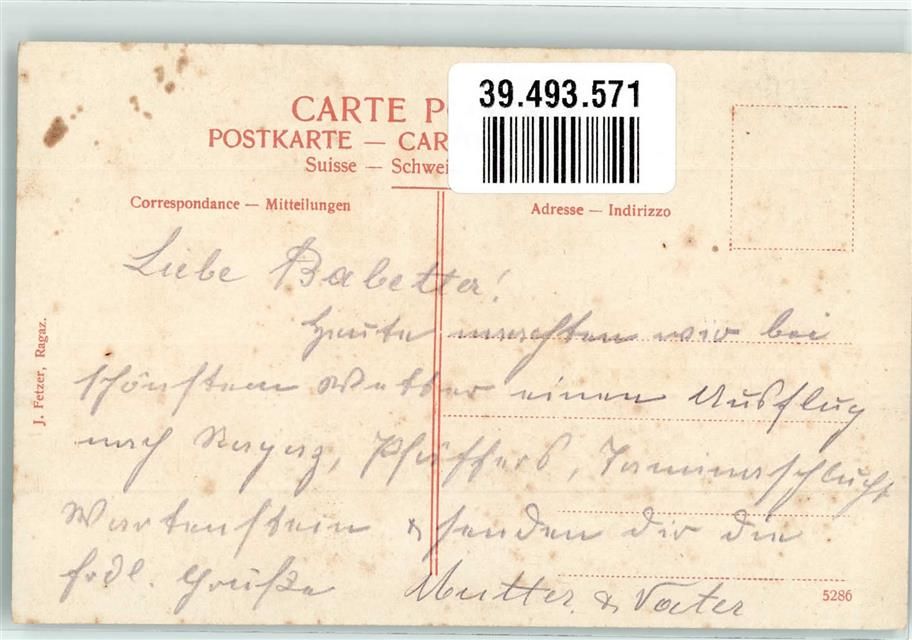 39.493.571
CARTE P
POSTKARTE — CAR
Suisse — Schwei
Correspondance — Mitteilungen
Adresse — Indirizzo
Liebe Babetta!
Heute machten wir bei
schönstem Wetter einen Ausflug
nach Ragaz, Pfäffers, Taminaschlucht
Wartenstein & senden dir die
frdl. Grüße Mutter & Vater
J. Fetzer, Ragaz.
5286